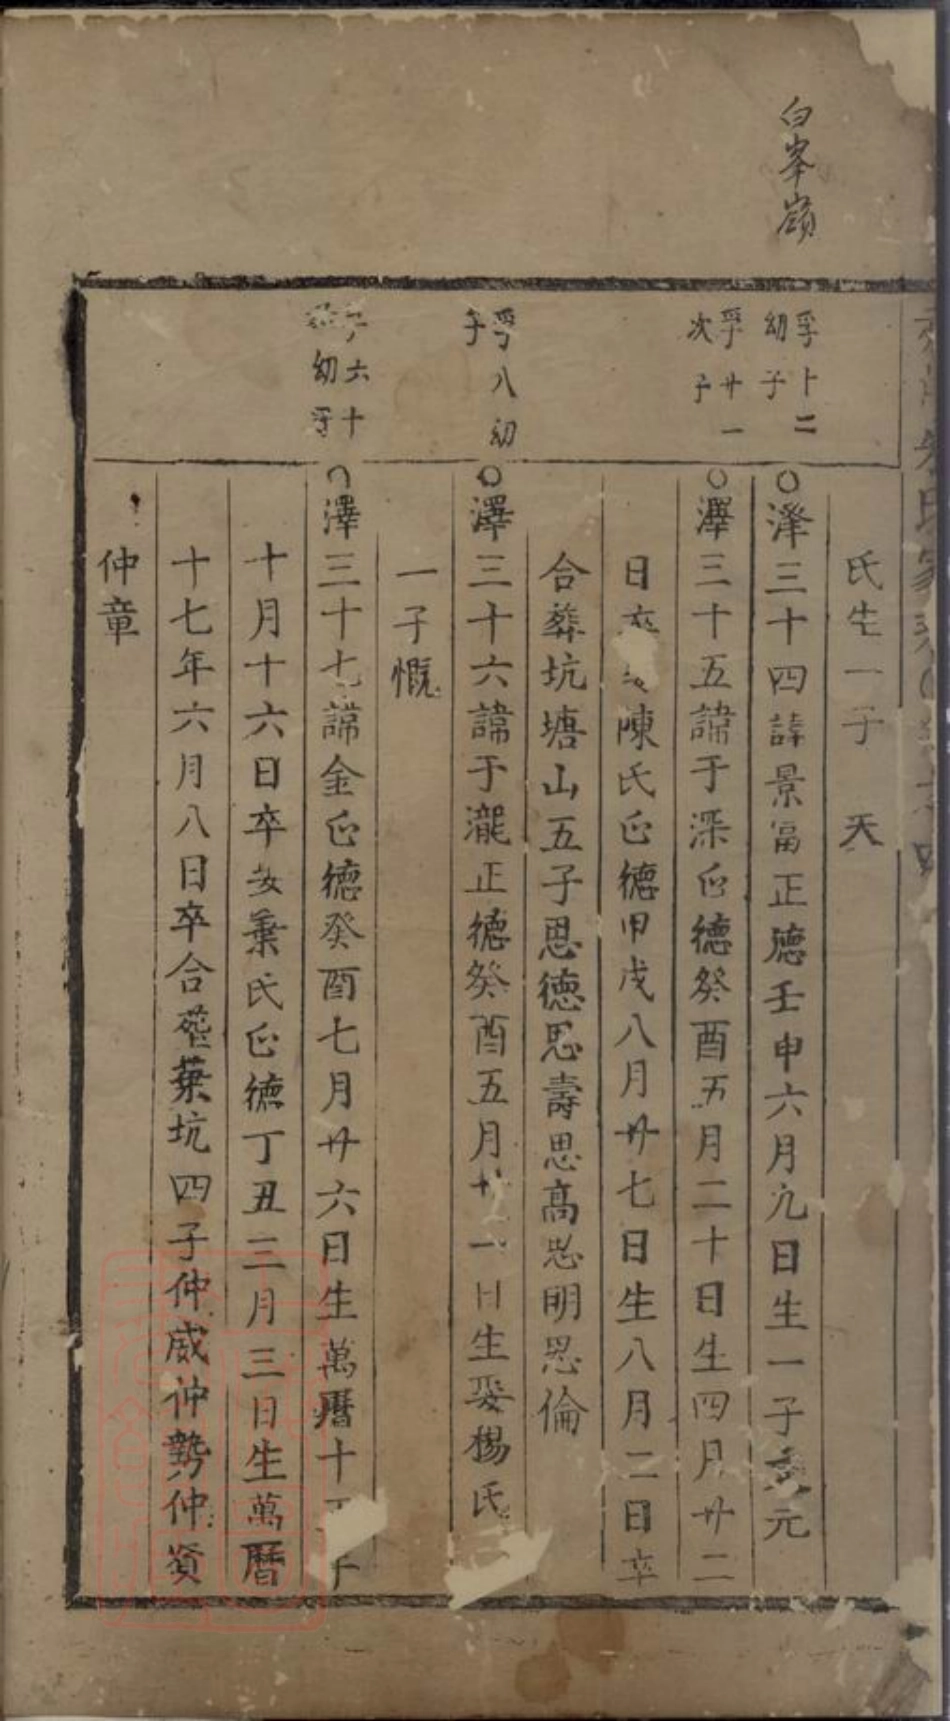 白峯嶺
孚十二
幼子
孚廿一
次子
孚八幼
子
六十
幼子
氏生一子 天
○澤三十四諱景富正德壬申六月九日生一子元
○澤三十五諱于深正德癸酉五月二十日生四月廿二
日卒陳氏正德甲戌八月廿七日生八月二日卒
合葬坑塘山五子思德思壽思高思明思倫
○澤三十六諱于瀧正德癸酉五月一日生娶楊氏
一子慨
○澤三十七諱金正德癸酉七月廿六日生萬曆十
十月十六日卒娶葉氏正德丁丑三月三日生萬曆
十七年六月八日卒合葬葉坑四子仲威仲勢仲資
仲章